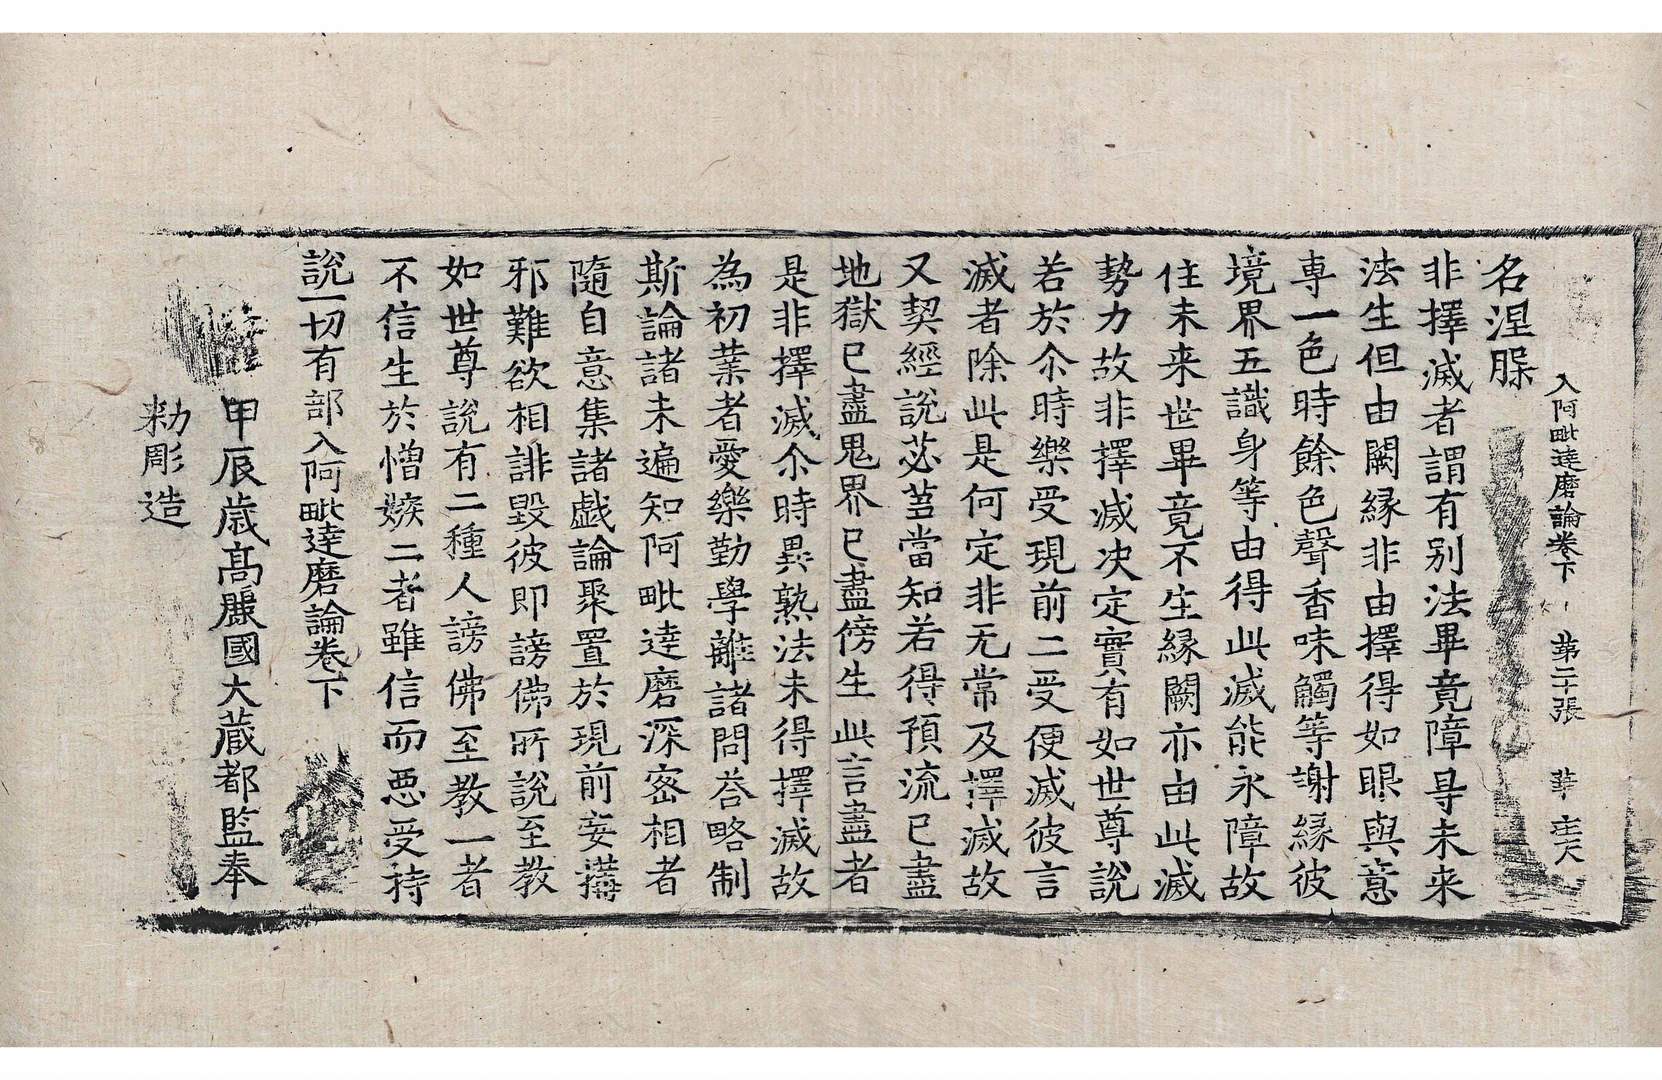 入阿毗達磨論卷下 第二十張 華 庄大
名涅槃
非擇滅者謂有別法畢竟障㝵未來
法生但由闕緣非由擇得如眼與意
專一色時餘色聲香味觸等謝緣彼
境界五識身等由得此滅能永障故
住未来世畢竟不生緣闕亦由此滅
勢力故非擇滅决定實有如世尊說
若於尒時樂受現前二受便滅彼言
滅者除此是何定非无常及擇滅故
又契經說苾芻當知若得預流已盡
地獄已盡鬼界已盡傍生此言盡者
是非擇滅尒時異熟法未得擇滅故
為初業者愛樂勤學離諸問荅略制
斯論諸未遍知阿毗達磨深密相者
隨自意集諸戲論聚置於現前妄搆
邪難欲相誹毀彼即謗佛所說至教
如世尊說有二種人謗佛至教一者
不信生於憎嫉二者雖信而惡受持
說一切有部入阿毗達磨論卷下
甲辰歲高麗國大藏都監奉
勑彫造